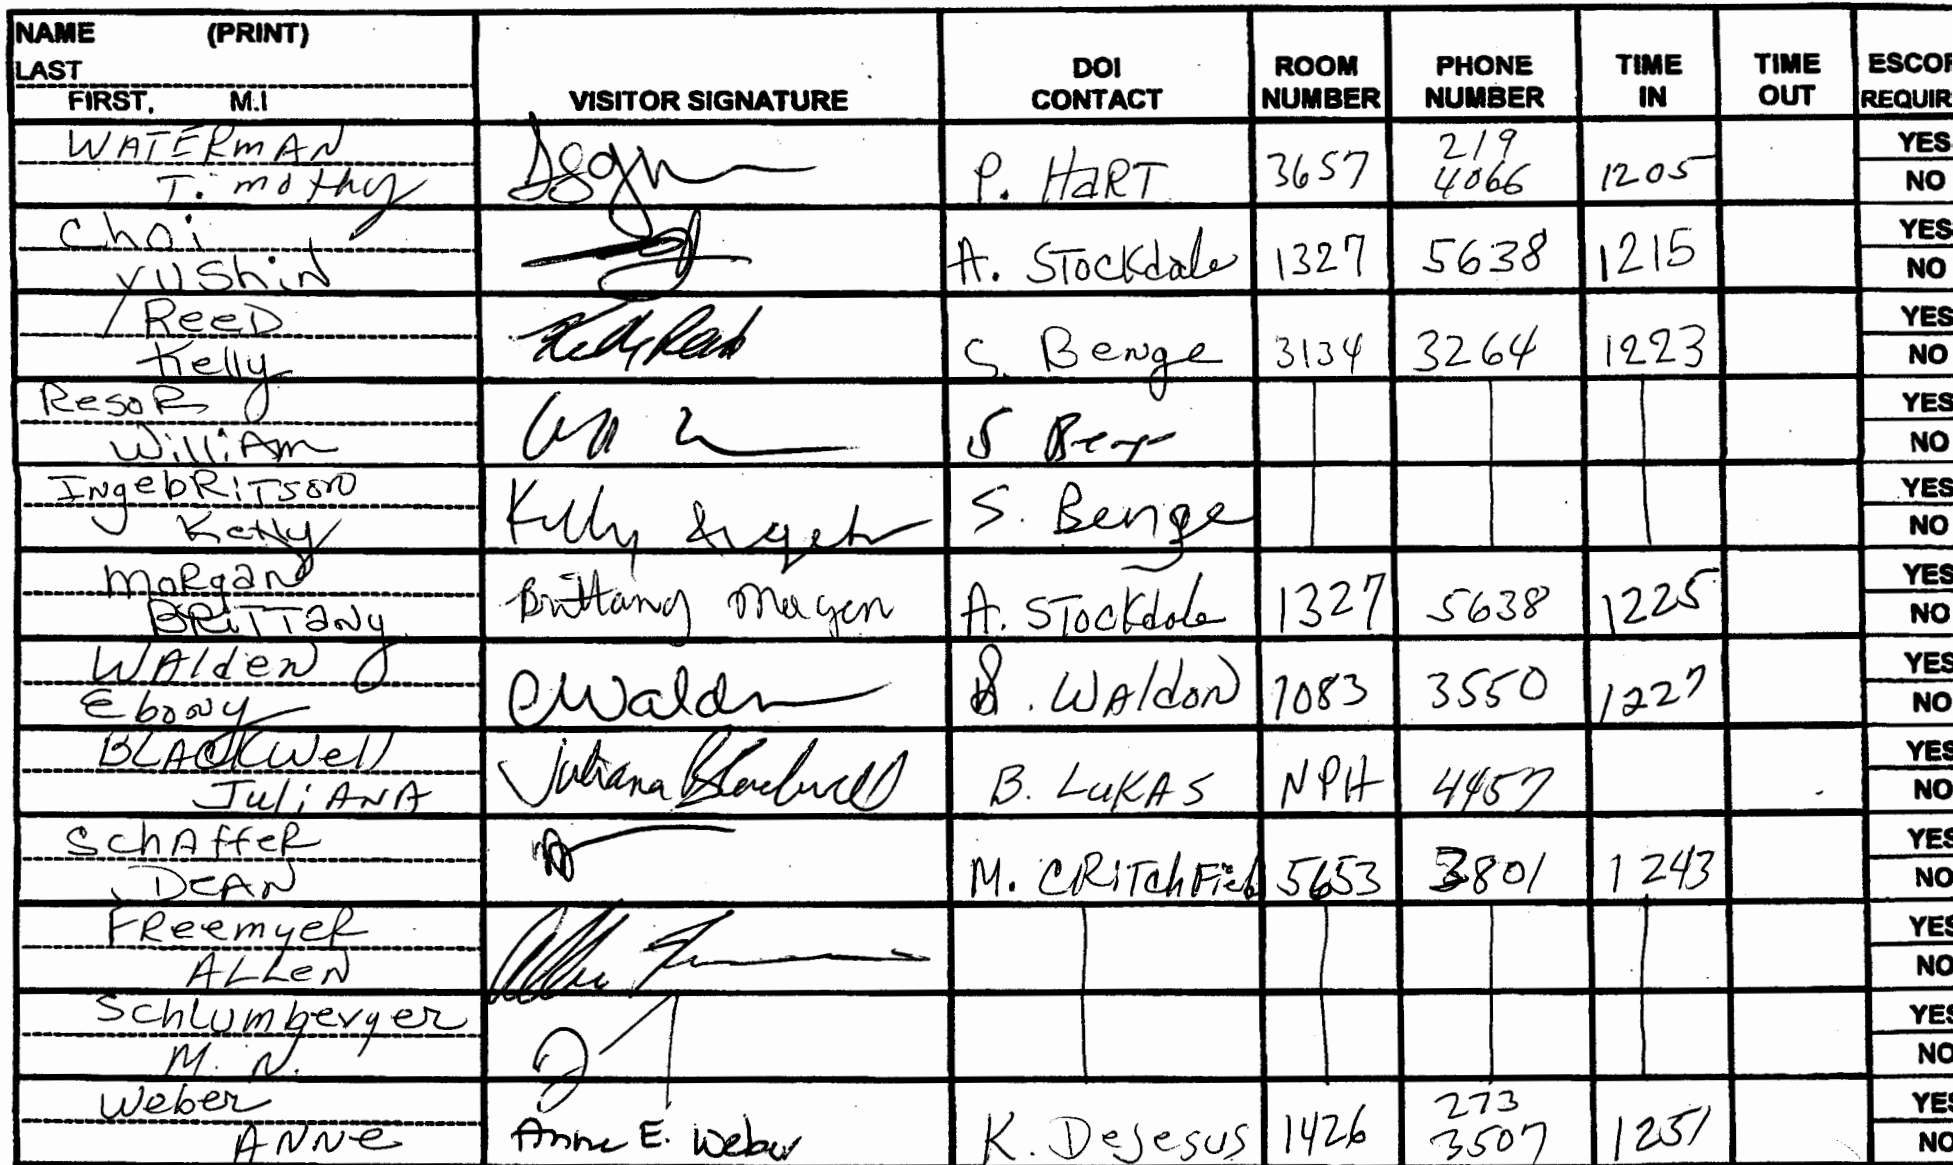 NAME (PRINT)
LAST
FIRST, M.I
VISITOR SIGNATURE
DOI
CONTACT
ROOM
NUMBER
PHONE
NUMBER
TIME
IN
TIME
OUT
WATERMAN
Timothy
P. HART
3657
219
4066
1205
YES
NO
Choi
YUShiN
A. STockdale
1327
5638
1215
YES
NO
ReeD
Kelly
Kelly Reed
S. Benge
3134
3264
1223
YES
NO
ResoR
WilliAm
YES
NO
IngebRiTsoN
Kelly
Kelly
S. Benge
YES
NO
MoRgaN
BRiTTaNy
Brittany Morgan
A. STockdale
1327
5638
1225
YES
NO
WAldeN
EboNy
EWalden
WAldoN
7083
3550
1227
YES
NO
BLAckWell
JuliANA
Juliana Blackwell
B. LuKAS
NPH
4457
YES
NO
SchAffeR
DEAN
M. CRiTchField
5653
3801
1243
YES
NO
FReemyeR
ALLeN
YES
NO
Schlumberger
M. N.
YES
NO
Weber
ANNe
Anne E. Weber
K. DeJesus
1426
273
3507
1251
YES
NO